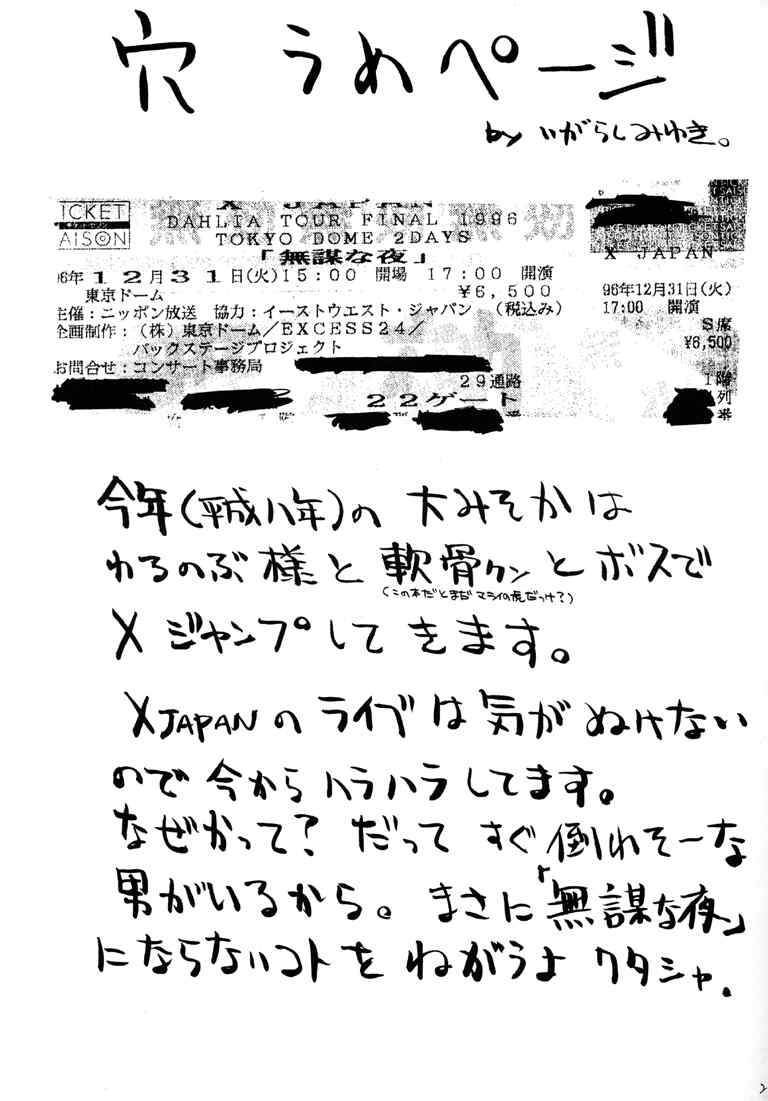 穴 うめページ
by いがらしみゆき。
TICKET
AISON
X JAPAN
DAHLIA TOUR FINAL 1996
TOKYO DOME 2DAYS
「無謀な夜」
96年12月31日(火)15:00 開場 17:00 開演
東京ドーム ¥6,500
主催:ニッポン放送 協力:イーストウエスト・ジャパン (税込み)
企画制作:(株)東京ドーム/EXCESS24/
バックステージプロジェクト
お問合せ:コンサート事務局
29通路
22ゲート
X JAPAN
96年12月31日(火)
17:00 開演
S席
¥6,500
1階
列
番
今年(平成八年)の 大みそかは
わるのぶ様と 軟骨クンと ボスで
(この本だとまだ マライの虎だっけ?)
X ジャンプして きます。
X JAPANの ライブ は 気が ぬけない
ので 今から ハラハラしてます。
なぜかって? だって すぐ 倒れそーな
男がいるから。 まさに「無謀な夜」
にならないコトを ねがうよ ワタシャ.
2